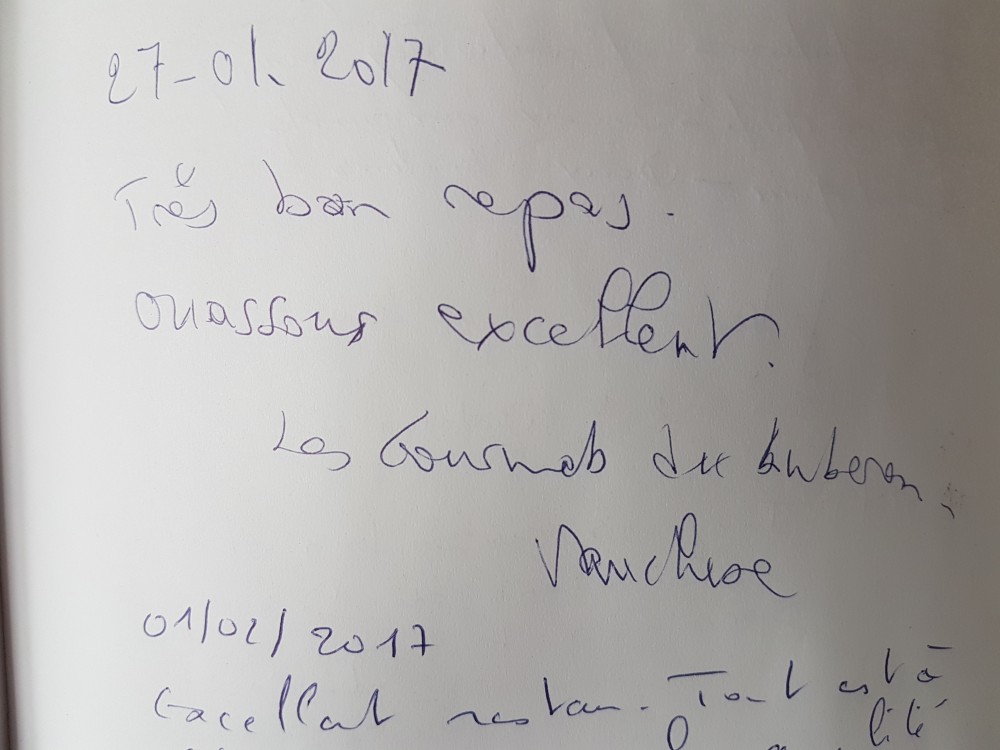 27-01. 2017
Très bon repas.
ouassous excellent.
Les Gourmets du Luberon,
Vaucluse
01/02/2017
Excellent restau. Tout est à